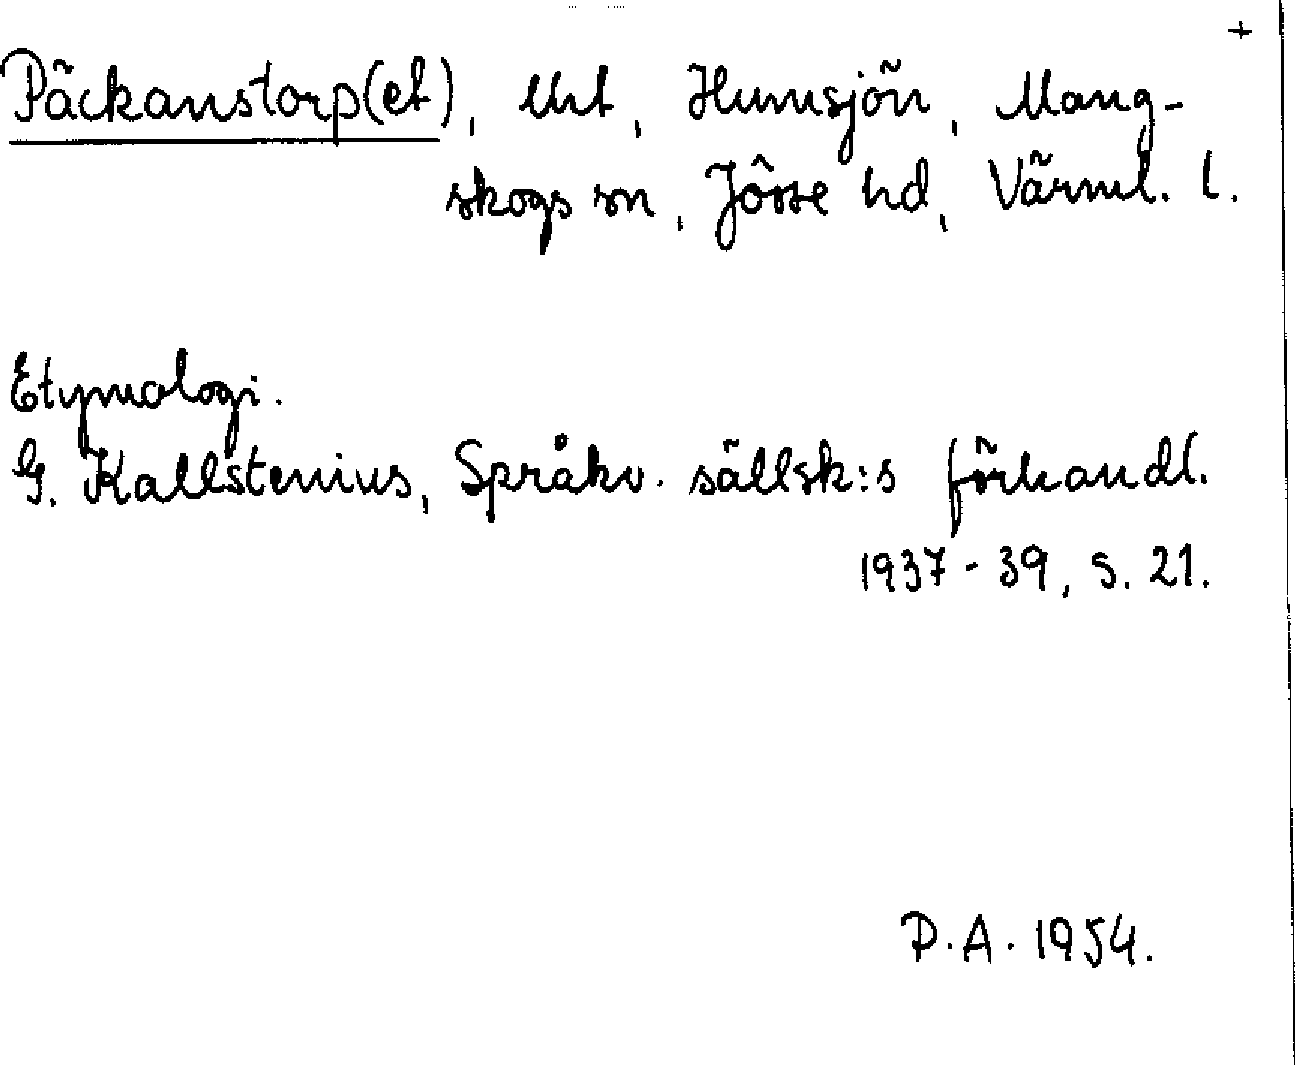 +
Päckanstorp(et), lht, Humsjön, Mang-
skogs sn, Jösse hd, Värml. l.
Etymologi.
G. Kallstenius, Språkv. sällsk:s förhandl.
1937-39, s. 21.
P.A. 1954.